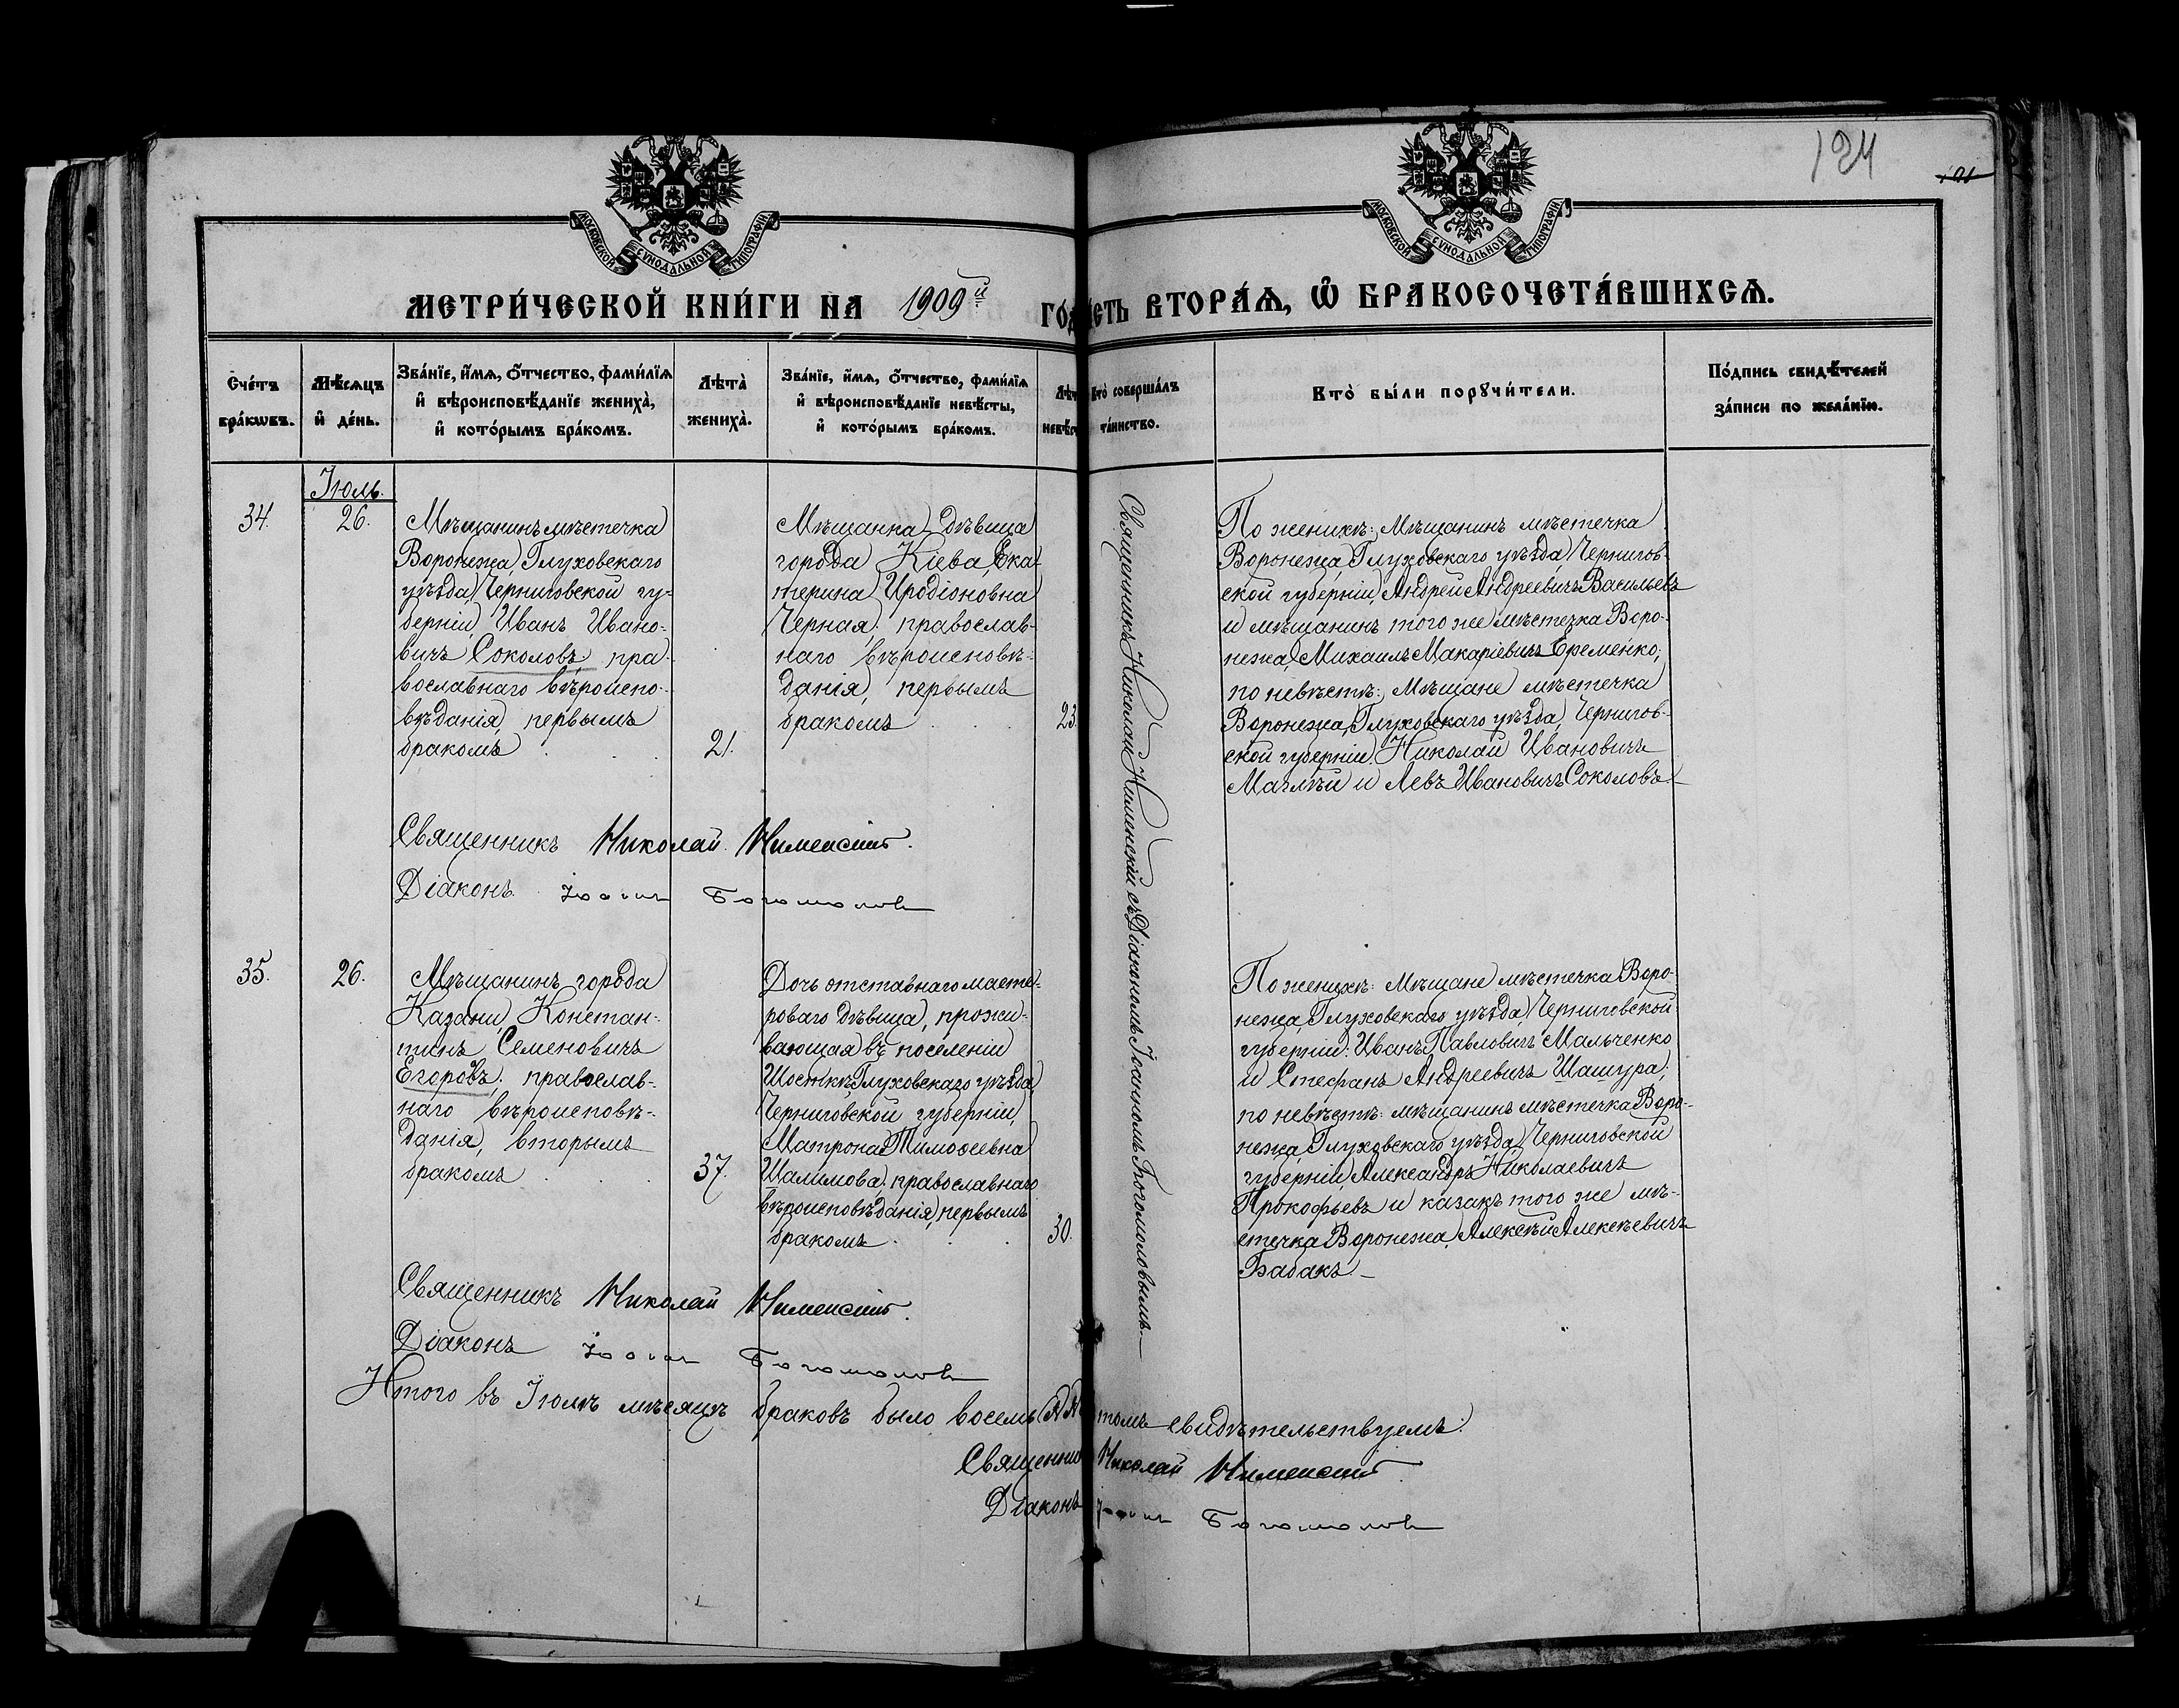 124
МОСКОВСКОЙ СѴНОДАЛЬНОЙ ТИПОГРАФІИ
МОСКОВСКОЙ СѴНОДАЛЬНОЙ ТИПОГРАФІИ
МЕТРИ́ЧЕСКОЙ КНИ́ГИ НА 1909й ГО́Д
СТЬ ВТОРА́Ѧ, Ѽ БРАКОСОЧЕТА́ВШИХСѦ.
Сче́тъ
бра́кѡвъ.
Мѣ́сяцъ
и҆ де́нь.
Зва́нїе, и҆́мѧ, о҆́тчество, фами́лїѧ
и҆ вѣроисповѣ́данїе жениха̀,
и҆ кото́рымъ бра́комъ.
Лѣ́та̀
жениха̀.
Зва́нїе, и҆́мѧ, о҆́тчество, фами́лїѧ
и҆ вѣроисповѣ́данїе невѣ́сты,
и҆ кото́рымъ бра́комъ.
Лѣт
невѣс
Кто̀ соверша́лъ
та́инство.
Кто̀ бы́ли порꙋчи́тели.
По́дпись свидѣ́телей
за́писи по жела́нїю.
Іюль.
34.
26.
Мѣщанинъ мѣстечка
Воронежа, Глуховскаго
уѣзда, Черниговской гу-
берніи, Иванъ Ивано-
вичъ Соколовъ, пра-
вославнаго вѣроиспо-
вѣданія, первымъ
бракомъ
21.
Мѣщанка дѣвица
города Кіева, Ека-
терина Иродіоновна
Черная, православ-
наго вѣроисповѣ-
данія, первымъ
бракомъ
23.
Священникъ Николай Нименскій съ Діакономъ Іоанномъ Богомоловымъ.
По женихѣ: Мѣщанинъ мѣстечка
Воронежа, Глуховскаго уѣзда, Чернигов-
ской губерніи, Андрей Андреевичъ Васильевъ
и мѣщанинъ того же мѣстечка Воро-
нежа, Михаилъ Макаріевичъ Еременко;
по невѣстѣ: Мѣщане мѣстечка
Воронежа, Глуховскаго уѣзда, Чернигов-
ской губерніи, Николай Ивановичъ
и Левъ Ивановичъ Соколовъ.
Священникъ Николай Нименскій.
Діаконъ Іоаннъ Богомоловъ
35.
26.
Мѣщанинъ города
Казани, Констан-
тинъ Семеновичъ
Егоровъ, православ-
наго вѣроисповѣ-
данія, вторымъ
бракомъ
37.
Дочь отставнаго масте-
роваго дѣвица, прожи-
вающая въ поселеніи
Шосткѣ, Глуховскаго уѣзда,
Черниговской губерніи,
Матрона Тимоѳеевна
Шалимова, православнаго
вѣроисповѣданія, первымъ
бракомъ
30.
По женихѣ: Мѣщане мѣстечка Воро-
нежа, Глуховскаго уѣзда, Черниговской
губерніи: Иванъ Павловичъ Мальченко
и Стефанъ Андреевичъ Шашура;
по невѣстѣ: мѣщанинъ мѣстечка Воро-
нежа, Глуховскаго уѣзда, Черниговской
губерніи, Александръ Николаевичъ
Прокофьевъ и казакъ того же мѣ-
стечка Воронежа, Алексѣй Алексѣевичъ
Бабакъ.
Священникъ Николай Нименскій.
Діаконъ Іоаннъ Богомоловъ
Итого въ Іюлѣ мѣсяцѣ браковъ было восемь томъ свидѣтельствуемъ:
Священник Николай Нименскій.
Діаконъ Іоаннъ Богомоловъ